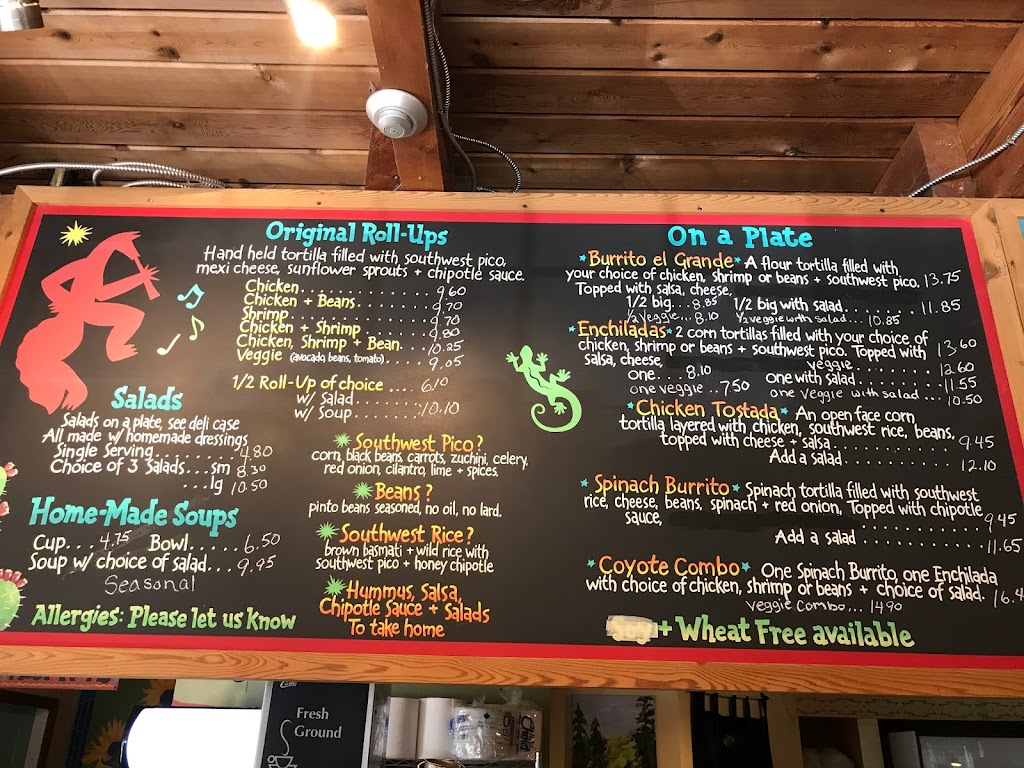 Original Roll-Ups
Hand held tortilla filled with southwest pico,
mexi cheese, sunflower sprouts + chipotle sauce.
Chicken........ 9.60
Chicken + Beans........ 9.70
Shrimp........ 9.70
Chicken + Shrimp........ 9.80
Chicken, Shrimp + Bean... 10.25
Veggie (avocado, beans, tomato)..... 9.05
1/2 Roll-Up of choice .... 6.10
w/ Salad........
w/ Soup........ 10.10
Salads
Salads on a plate, see deli case
All made w/ homemade dressings
Single Serving........ 4.80
Choice of 3 Salads...sm 8.30
...lg 10.50
Home-Made Soups
Cup... 4.75 Bowl...... 6.50
Soup w/ choice of salad... 9.95
Seasonal
Allergies: Please let us know
Southwest Pico?
corn, black beans, carrots, zuchini, celery,
red onion, cilantro, lime + spices.
Beans?
pinto beans seasoned, no oil, no lard.
Southwest Rice?
brown basmati + wild rice with
southwest pico + honey chipotle
Hummus, Salsa,
Chipotle Sauce + Salads
To take home
On a Plate
Burrito el Grande A flour tortilla filled with
your choice of chicken, shrimp or beans + southwest pico. 13.75
Topped with salsa, cheese,
1/2 big... 8.85 1/2 big with salad........ 11.85
1/2 veggie... 8.10 1/2 veggie with salad... 10.85
Enchiladas 2 corn tortillas filled with your choice of
chicken, shrimp or beans + southwest pico. Topped with 13.60
salsa, cheese, veggie........ 12.60
one.... 8.10 one with salad........ 11.55
one veggie.. 7.50 one veggie with salad... 10.50
Chicken Tostada An open face corn
tortilla layered with chicken, southwest rice, beans,
topped with cheese + salsa........ 9.45
Add a salad........ 12.10
Spinach Burrito Spinach tortilla filled with southwest
rice, cheese, beans, spinach + red onion, Topped with chipotle
sauce, ........ 9.45
Add a salad ........ 11.65
Coyote Combo One Spinach Burrito, one Enchilada
with choice of chicken, shrimp or beans + choice of salad.
veggie combo... 14.90
+ Wheat Free available
Fresh
Ground